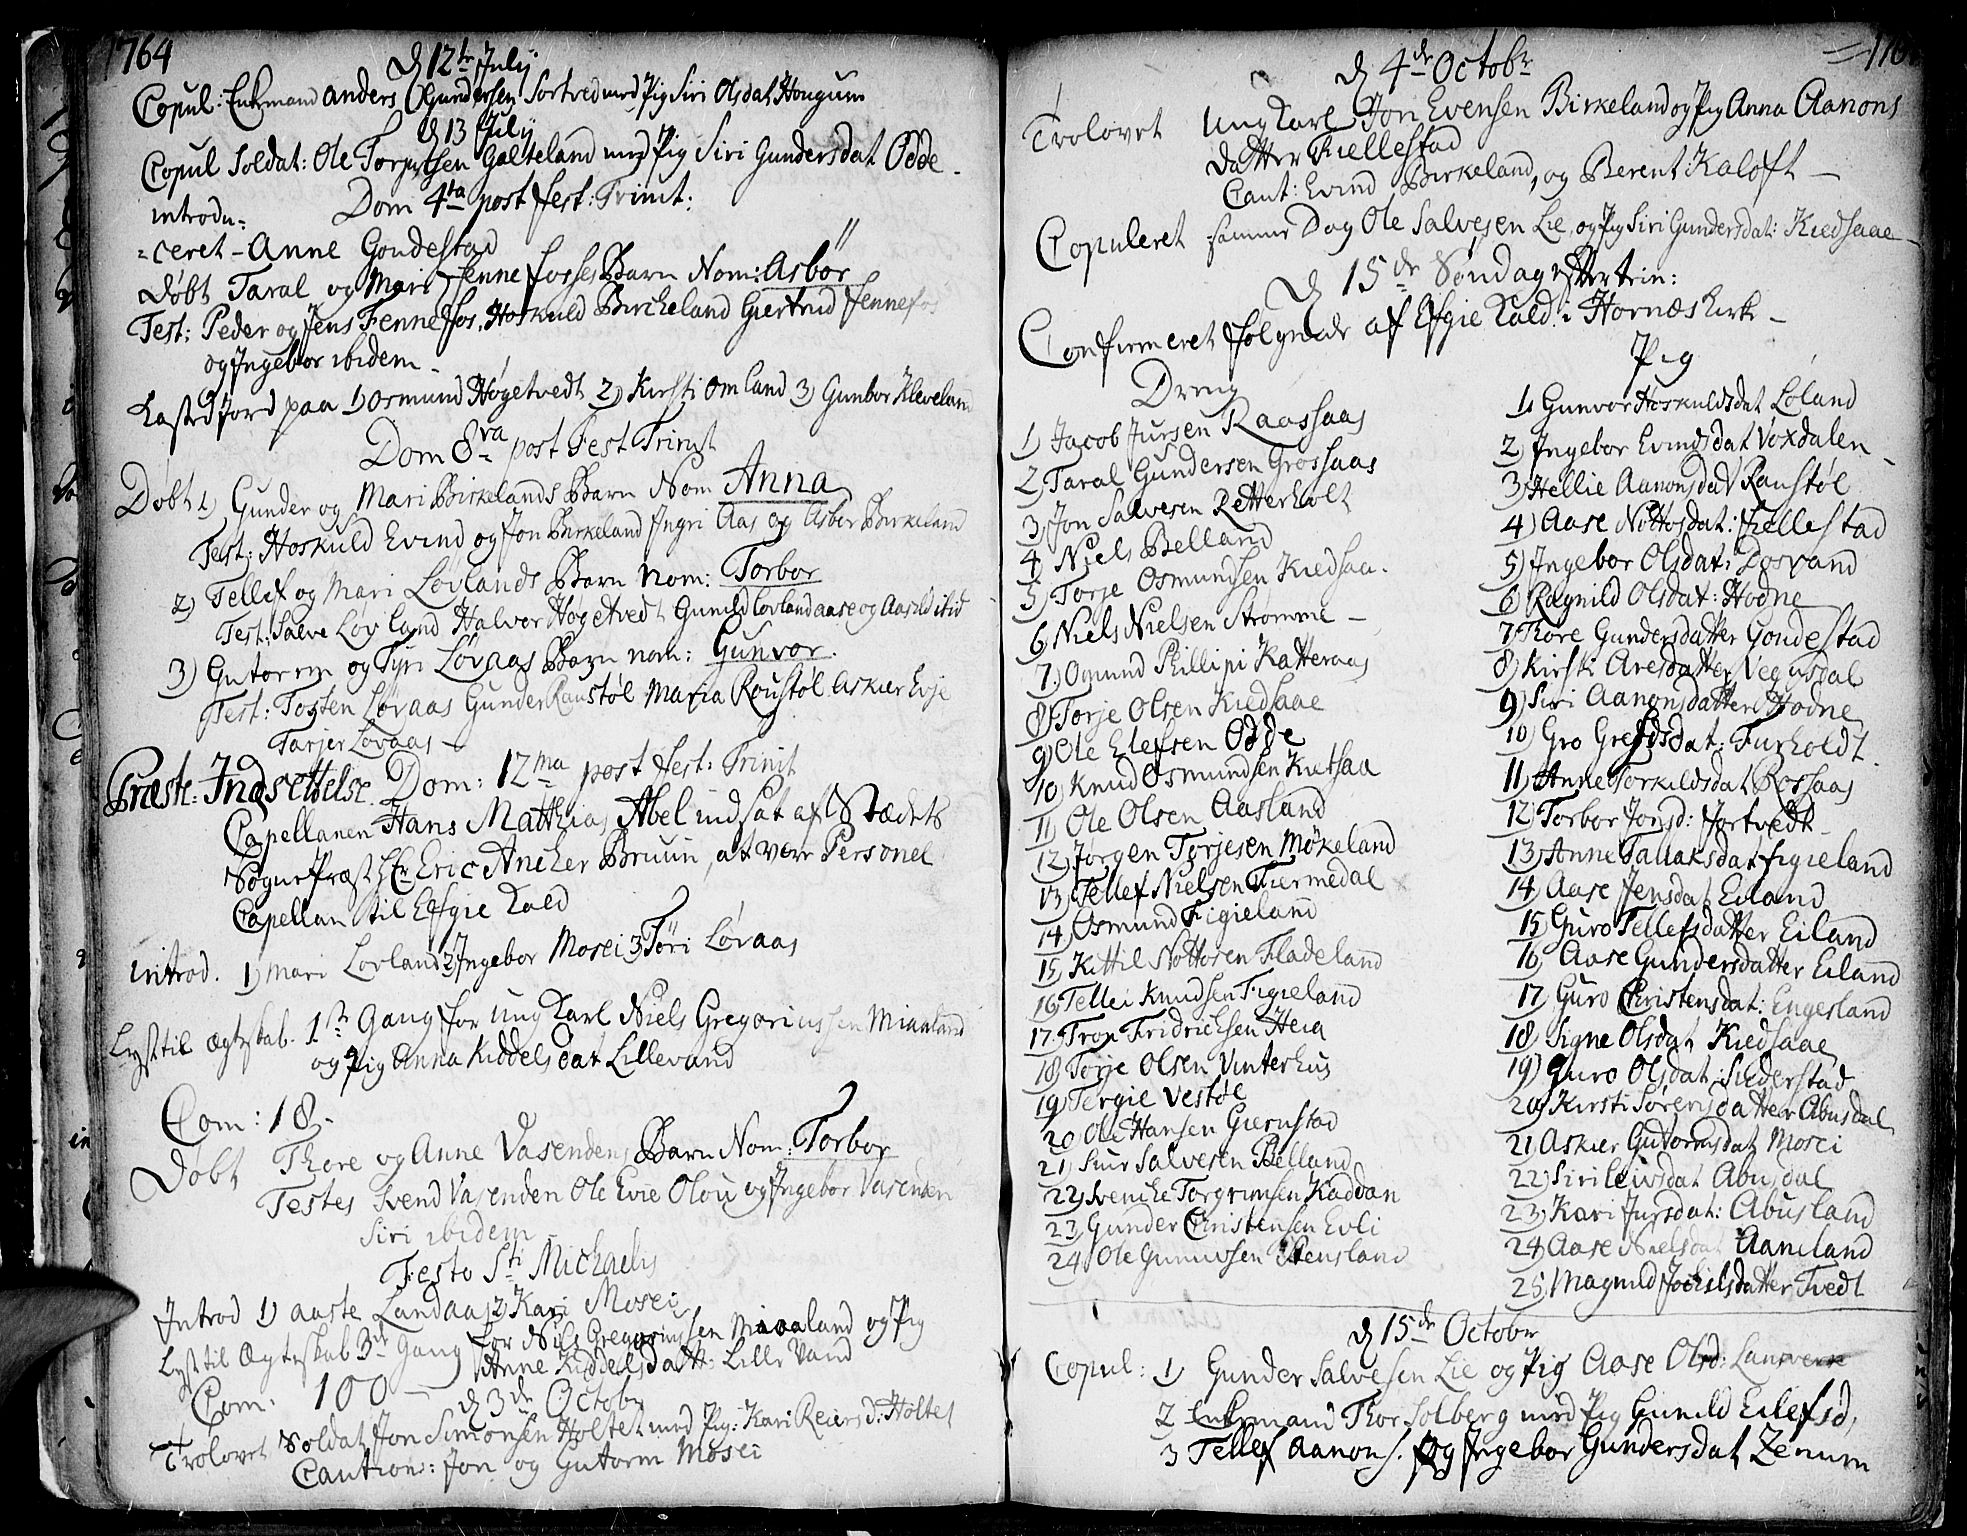 1764
d 12te July
Copul: Enkemand anders Gundersen Sortved med Pig Siri Olsdat Hougum
d 13 July
Copul Soldat: Ole Torgersen Galteland med Pig Siri Gundersdat Odde
introdu= Dom 4ta post fest: Trinit:
=ceret - Anne Goudestad
Døbt Taral og Mari Fennefosses Barn Nom: Asbor
Test: Peder og Jens Fennefos, Hoskuld Birckeland Giertrud Fennefos
og Ingebor ibidem
Kasted Jord paa 1) Osmund Høgetvedt 2) Kirsti Omland 3) Gunbor Kleveland
Dom 8va post Fest Trinit
Døbt 1) Gunder og Mari Birkelands Barn Nom Anna
Test: Hoskuld Evind og Jon Birkeland Ingri Aas og Asbor Birkeland
2) Tellef og Mari Løvlands Barn nom: Torbor
Test: Salve Løvland Halvor Høgetvedt Gunild Lovland aase og Aasold ibid
3) Gutorm og Tyri Løvaas Barn nom: Gunvor.
Test: Tosten Løvaas Gunder Raustøl Maria Roustøl Askier Evje
Tarjer Løvaas
Præste-Indsettelse Dom: 12ma post fest: Trinit
Capellanen Hans Matthias Abel indsat af Stædets
SognePræst Hr Eric Ancher Bruun, at være Personel
Capellan til Efgie Kald
introd. 1) Mari Lovland 2 Ingebor Mosei 3 Töri Løvaas
Lyst til Ægteskab. 1ste Gang for ung Karl Niels Gregoriussen Miaaland
og Pig Anna Kiddelsdat Lillevand
Com: 18.
Døbt Thore og Anne Vasendens Barn Nom: Torbor
Testes Svend Vasenden Ole Evie Olou og Ingebor Vasenden
Siri ibidem
Festo Sti Michaelis
Introd 1) aaste Landaas 2) Kari Mosei
Lyst til Ægteskab 3de Gang for Nils Gregoriussen Miaaland og Pig
Anne Kiddelsdatt: Lille Vand
Com: 100
d 3de Octobr
Trolovet Soldat Jon Simonsen Holtet med Pig: Kari Reiersd: Holtet
Caution: Jon og Gutorm Mosei
d 4de Octobr
Trolovet Ung Karl Jon Evensen Birkeland og Pig Anna Aanons
datter Fiellestad
Caut: Evind Birkeland, og Berent Kaloft
Copuleret samme Dag Ole Salvesen Lie, og Pig Siri Gundersdat: Kiedsaae
d 15de Søndag efter trin:
Confirmeret følgende af Efgie Kald i Hornæs Kirke
Dreng
1) Jacob Jursen Raassaas
2) Taral Gundersen Grossaas
3) Jon Salvesen Retterholt
4 Niels Belland
5) Torje Osmundsen Kiedsaa.
6 Niels Nielsen Strømme
7) Ogmund Phillipi Katteraas
8) Torje Olsen Kiedsaae
9) Ole Elefsen Odde
10) Knud Osmundsen Kietsaa
11 Ole Olsen Aasland
12) Jørgen Torjesen Mökeland
13) Tellef Nielsen Fiermedal
14 Osmund Figieland
15) Kittil Nottosen Fladeland
16) Tellei Knudsen Figieland
17. Tron Fridrichsen Heia
18) Torje Olsen Vinterhus
19) Tergie Vestøl
20 Ole Hansen Giernstad
21) Siur Salvesen Belland
22) Svenche Torgrimsen Kaddan
23) Gunder Christensen Evli
24) Ole Gunuvsen Stensland
Pig
1. Gunvor Hoskuldsdat Løland
2) Ingebor Evindsdat Voxdalen
3) Hellie Aanonsdat Raustøl
4) Aase Nottosdat: Fiellestad
5) Ingebor Olsdat: Dosvand
6) Ragnild Olsdat: Hodne
7) Thore Gundersdatter Goudestad
8) Kirsti Aresdatter Vegusdal
9) Siri Aanonsdatter Hodne
10) Gro Grefsdat: Furholdt
11) Anne Torkildsdat Rossaas
12) Torbor Jonsd: Jortvedt
13) Anne Tallaksdat figieland
14) Aase Jensdat Eiland
15 Guro Tellefsdatter Eiland
16) Aase Gundersdatter Eiland
17) Guro Christensdat: Engesland
18) Signe Olsdat Kiedsaae
19) Guro Olsdat: Siederstad
20) Kirsti Sørensdatter Abusdal
21 Askier Gutormsdat Mosei
22) Siri Leivsdat Abusdal
23) Kari Jursdat: Abusland
24) Aase Nielsdat Aaneland
25) Magnild Jochilsdatter Tvedt
d 15de Octobr
Copul: 1) Gunder Salvesen Lie og Pig Aase Olsd: Lanverk
2 Enkemand Thor Solberg med Pig Gunild Eilefsd,
3 Tellef Aanons. og Ingebor Gundersdat Zenum